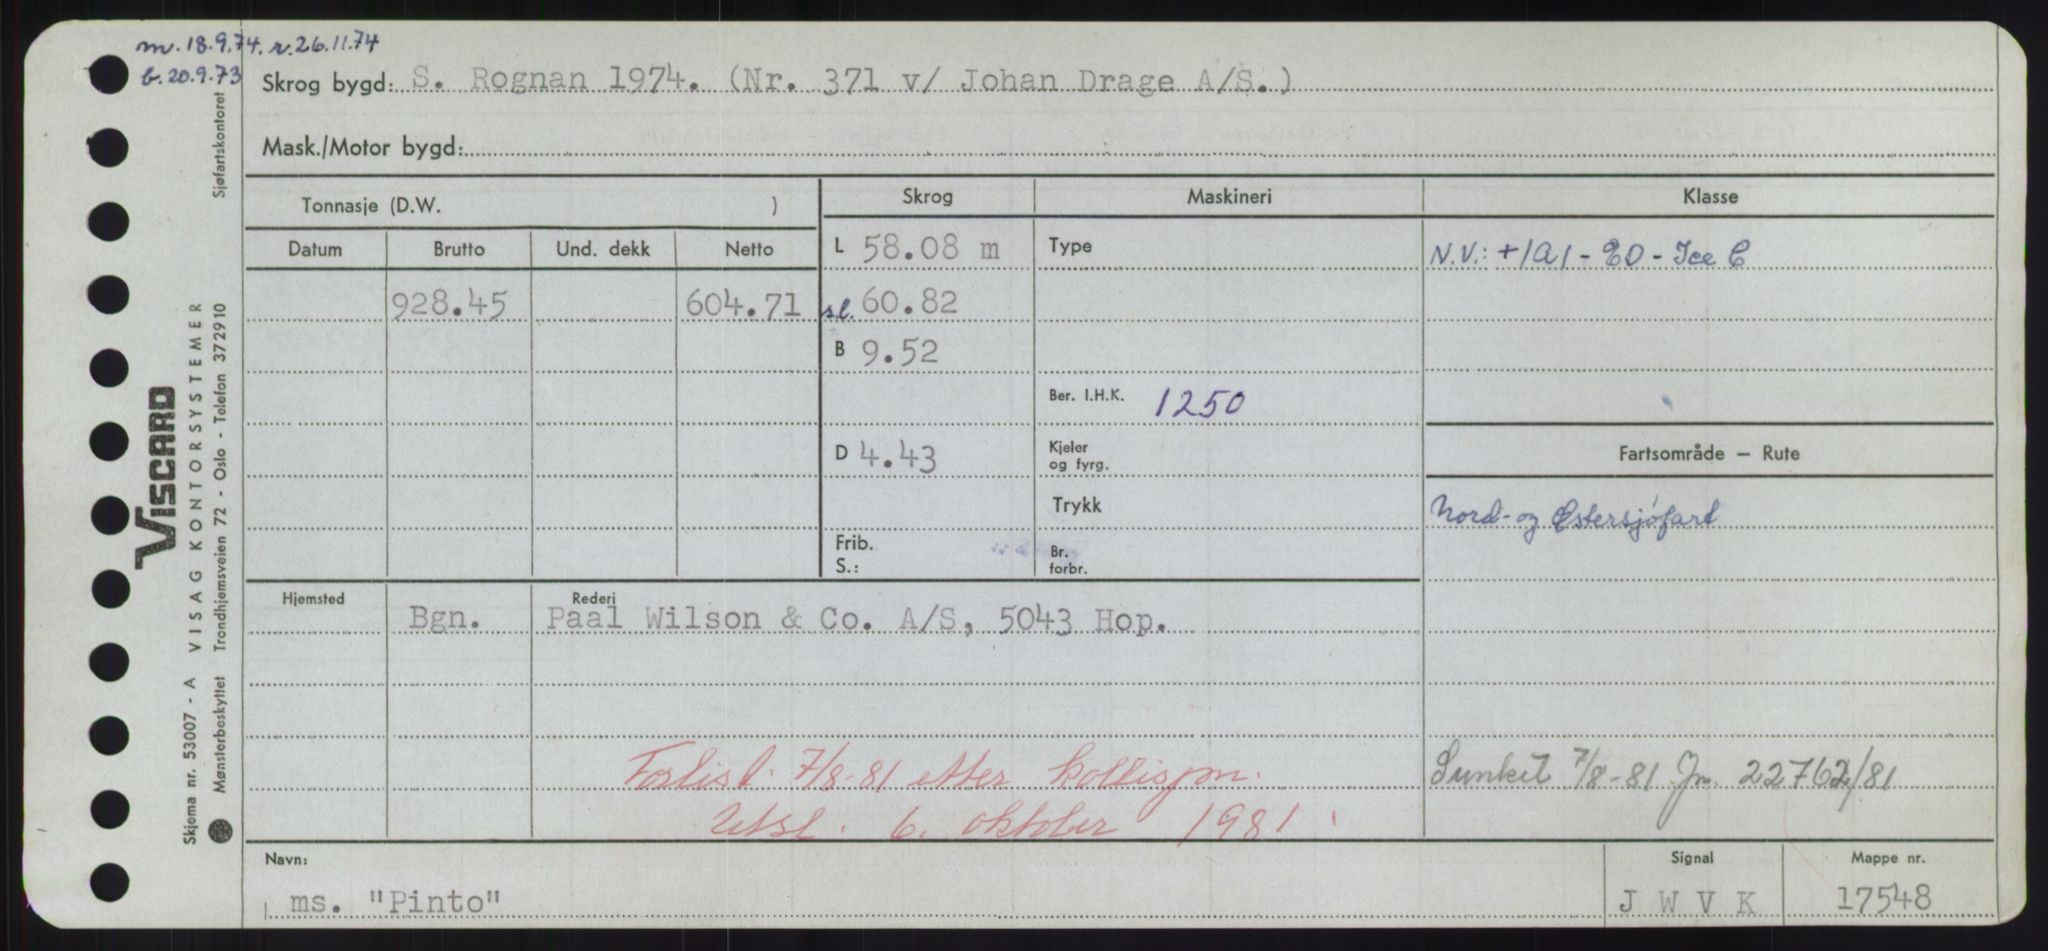 m. 18.9.74. r. 26.11.74
b. 20.9.73
Skrog bygd: S. Rognan 1974. (Nr. 371 v/ Johan Drage A/S.)
Mask./Motor bygd:
Tonnasje (D.W. )
Skrog Maskineri Klasse
Datum Brutto Und. dekk Netto
L 58.08 m Type N.V.: +1A1 - EO - Ice C
928.45 604.71 sl. 60.82
B 9.52
Ber. I.H.K. 1250
D 4.43 Kjeler og fyrg.
Fartsområde — Rute
Trykk Nord- og Østersjøfart
Frib.
S.:
Br. forbr.
Hjemsted Rederi
Bgn. Paal Wilson & Co. A/S, 5043 Hop.
Forlist 7/8-81 etter kollisjon.
Sunket 7/8-81 Jn. 22762/81
Utsl. 6. oktober 1981.
Navn: Signal Mappe nr.
ms. "Pinto" J W V K 17548
Sjøfartskontoret
VISCARD
VISAG KONTORSYSTEMER
Trondhjemsveien 72 - Oslo - Telefon 372910
Skjema nr. 53007 - A
Mønsterbeskyttet